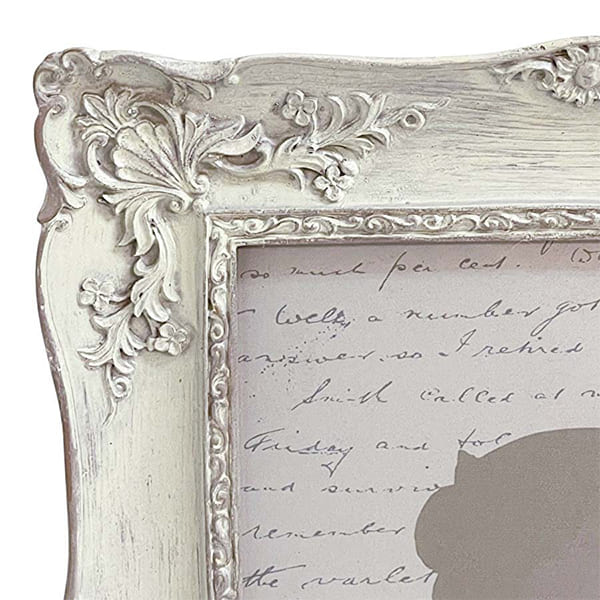 so much per cent.
- Well, a number got
answer, so I retired
Smith called at
Friday and tol
and surviv
remember
the varlet